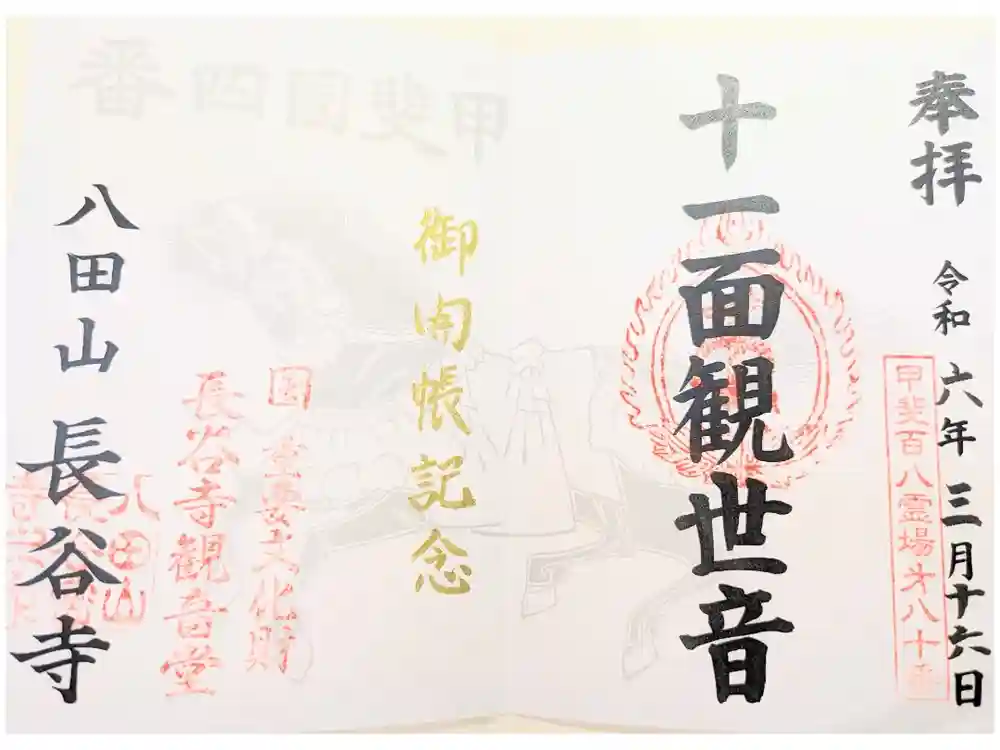 奉拝
令和六年三月十六日
甲斐百八霊場才八十番
十一面観世音
御開帳記念
甲斐國四番
国重要文化財
長谷寺観音堂
八田山
八田山長谷寺